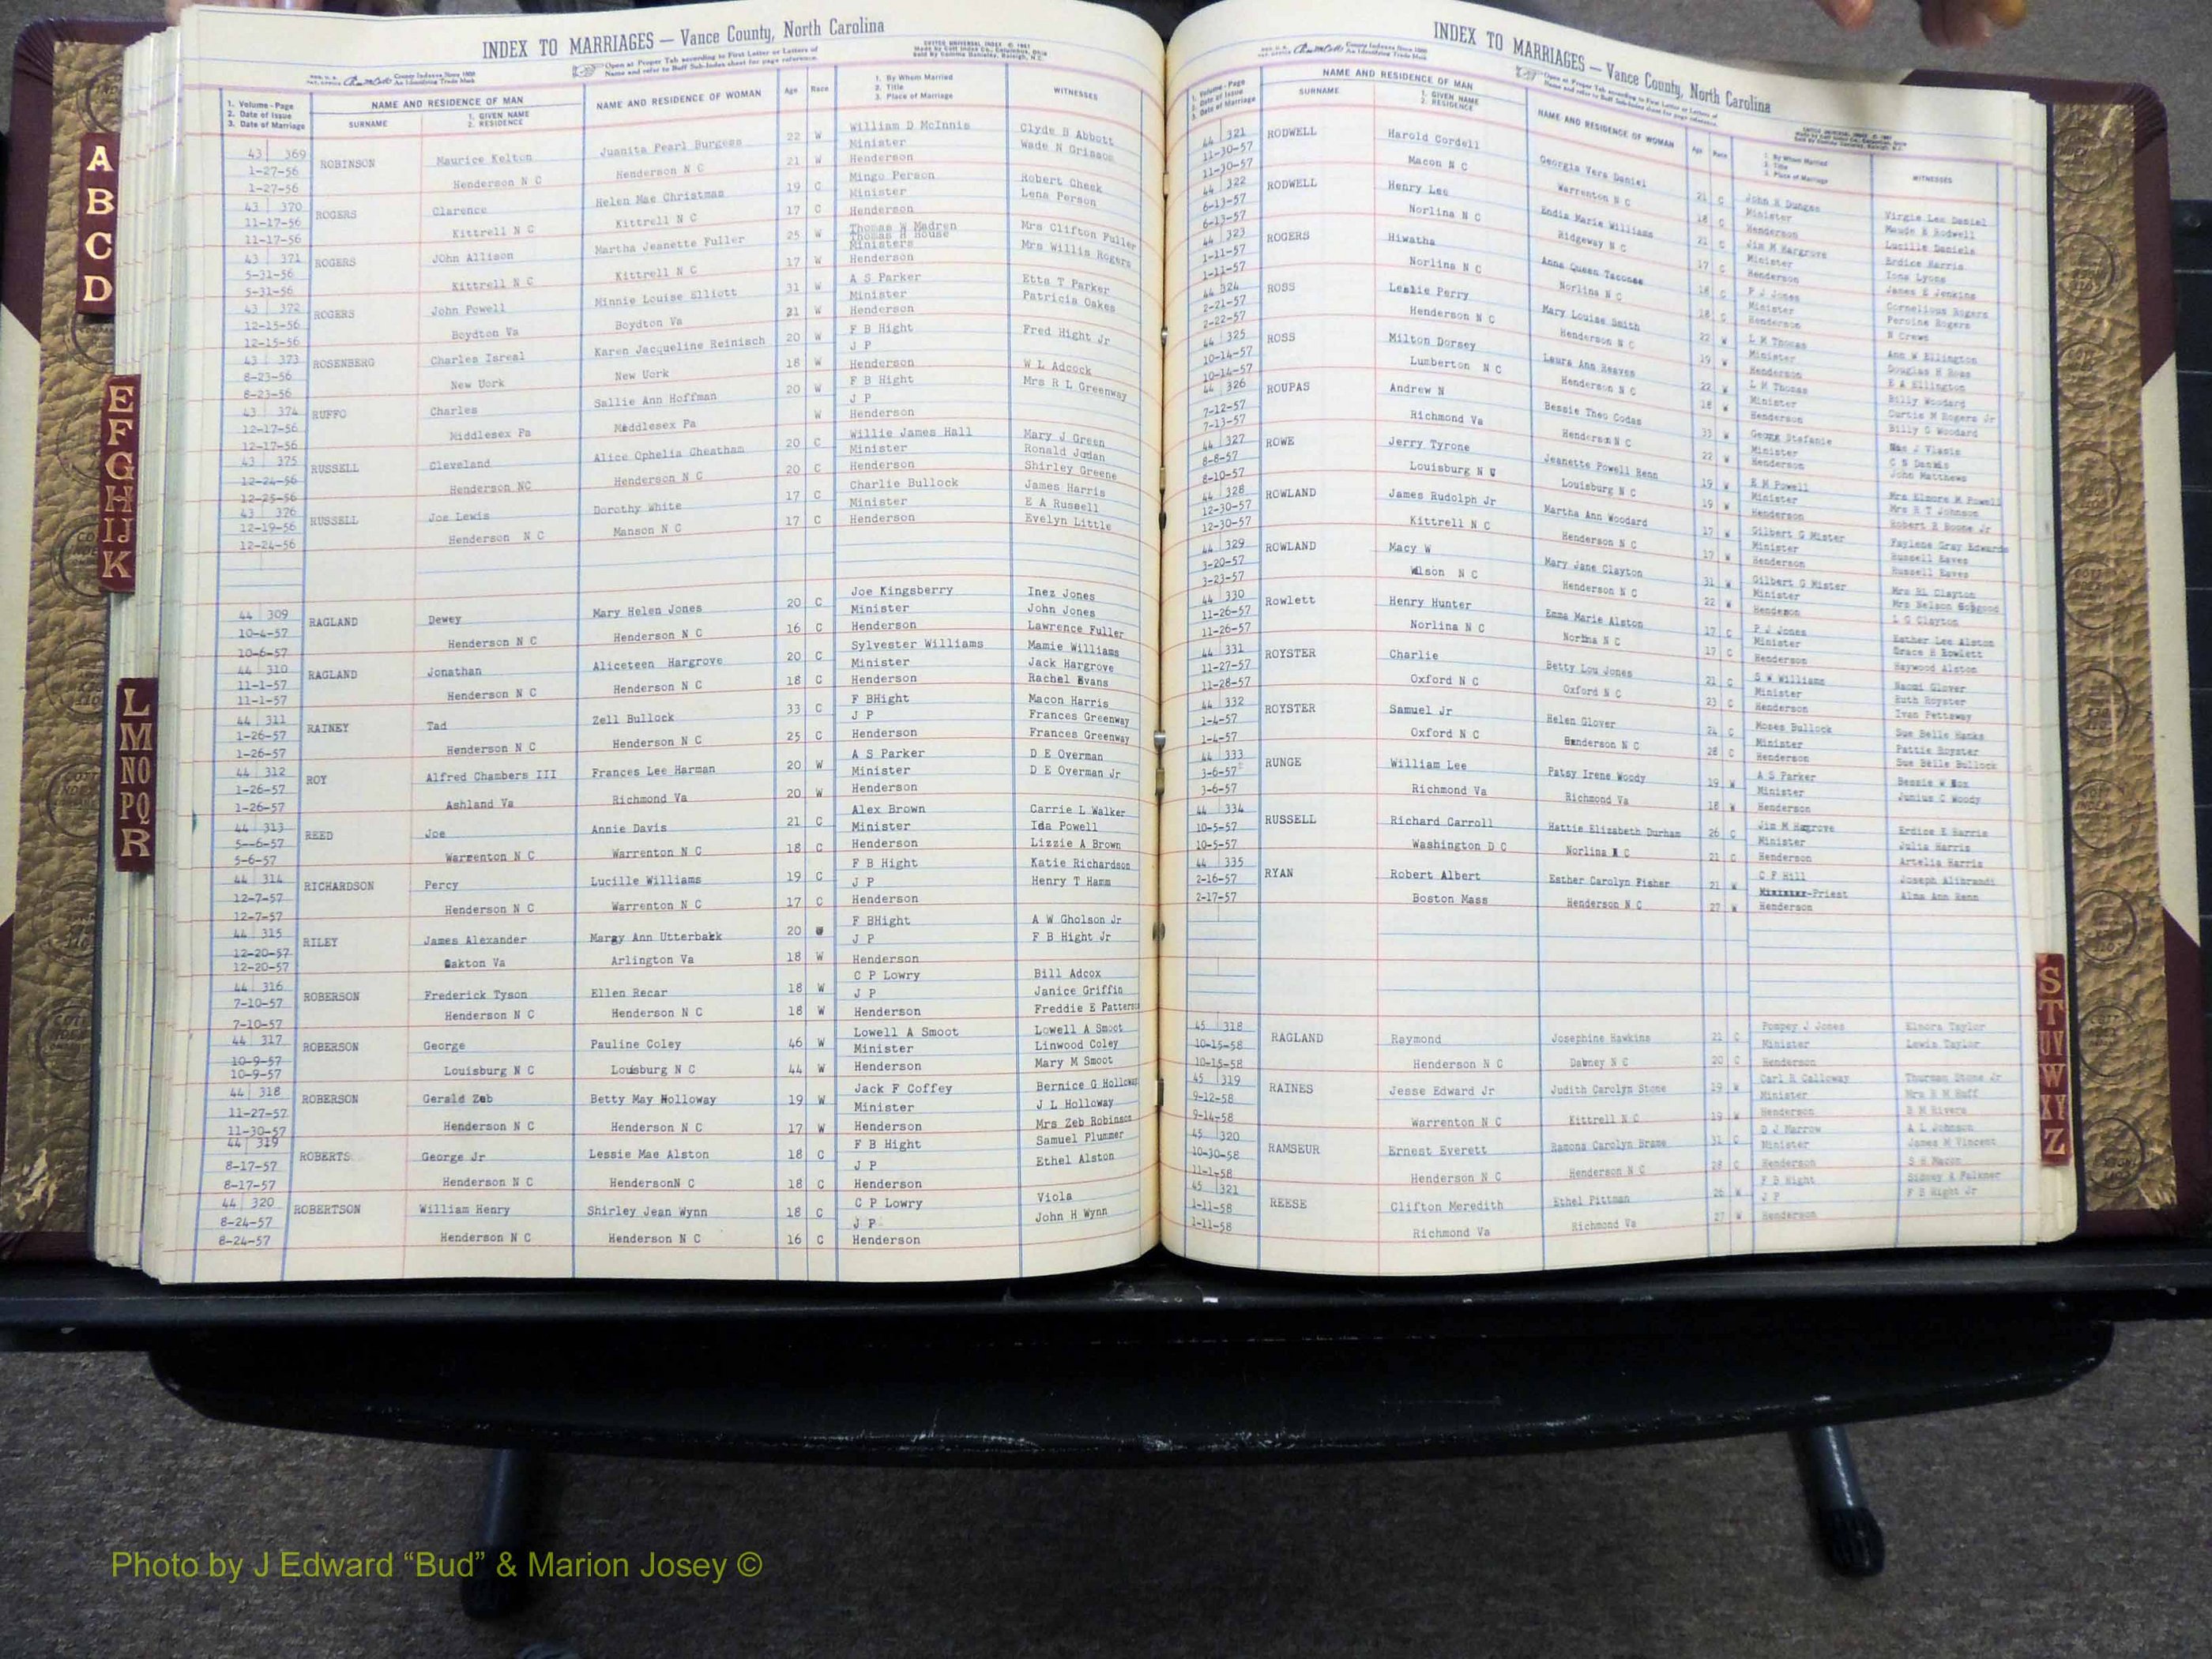 INDEX TO MARRIAGES — Vance County, North Carolina
Open at Proper Tab according to First Letter or Letters of
Name and refer to Buff Sub-Index sheet for page reference.
1. Volume - Page
2. Date of Issue
3. Date of Marriage
NAME AND RESIDENCE OF MAN
SURNAME
1. GIVEN NAME
2. RESIDENCE
NAME AND RESIDENCE OF WOMAN
Age Race
1. By Whom Married
2. Title
3. Place of Marriage
WITNESSES
43 369 ROBINSON Maurice Kelton Juanita Pearl Burgess 22 W William D McInnis Clyde B Abbott
1-27-56 Minister Wade N Grissom
1-27-56 Henderson N C Henderson N C 21 W Henderson
43 370 ROGERS Clarence Helen Mae Christmas 19 C Mingo Person Robert Cheek
11-17-56 Minister Lena Person
11-17-56 Kittrell N C Kittrell N C 17 C Henderson
43 371 ROGERS John Allison Martha Jeanette Fuller 25 W Thomas W Madren Mrs Clifton Fuller
Thomas H House
5-31-56 Ministers Mrs Willis Rogers
5-31-56 Kittrell N C Kittrell N C 17 W Henderson
43 372 ROGERS John Powell Minnie Louise Elliott 31 W A S Parker Etta T Parker
12-15-56 Minister Patricia Oakes
12-15-56 Boydton Va Boydton Va 21 W Henderson
43 373 ROSENBERG Charles Isreal Karen Jacqueline Reinisch 20 W F B Hight Fred Hight Jr
8-23-56 J P
8-23-56 New Uork New Uork 18 W Henderson W L Adcock
43 374 RUFFO Charles Sallie Ann Hoffman 20 W F B Hight Mrs R L Greenway
12-17-56 J P
12-17-56 Middlesex Pa Middlesex Pa W Henderson
43 375 RUSSELL Cleveland Alice Ophelia Cheatham 20 C Willie James Hall Mary J Green
12-24-56 Minister Ronald Jordan
12-25-56 Henderson NC Henderson N C 20 C Henderson Shirley Greene
43 376 RUSSELL Joe Lewis Dorothy White 17 C Charlie Bullock James Harris
12-19-56 Minister E A Russell
12-24-56 Henderson N C Manson N C 17 C Henderson Evelyn Little
44 309 RAGLAND Dewey Mary Helen Jones 20 C Joe Kingsberry Inez Jones
10-4-57 Minister John Jones
10-6-57 Henderson N C Henderson N C 16 C Henderson Lawrence Fuller
44 310 RAGLAND Jonathan Aliceteen Hargrove 20 C Sylvester Williams Mamie Williams
11-1-57 Minister Jack Hargrove
11-1-57 Henderson N C Henderson N C 18 C Henderson Rachel Evans
44 311 RAINEY Tad Zell Bullock 33 C F BHight Macon Harris
1-26-57 J P Frances Greenway
1-26-57 Henderson N C Henderson N C 25 C Henderson Frances Greenway
44 312 ROY Alfred Chambers III Frances Lee Harman 20 W A S Parker D E Overman
1-26-57 Minister D E Overman Jr
1-26-57 Ashland Va Richmond Va 20 W Henderson
44 313 REED Joe Annie Davis 21 C Alex Brown Carrie L Walker
5--6-57 Minister Ida Powell
5-6-57 Warrenton N C Warrenton N C 18 C Henderson Lizzie A Brown
44 314 RICHARDSON Percy Lucille Williams 19 C F B Hight Katie Richardson
12-7-57 J P Henry T Hamm
12-7-57 Henderson N C Warrenton N C 17 C Henderson
44 315 RILEY James Alexander Margy Ann Utterback 20 F BHight A W Gholson Jr
12-20-57 J P F B Hight Jr
12-20-57 Oakton Va Arlington Va 18 W Henderson
44 316 ROBERSON Frederick Tyson Ellen Recar 18 W C P Lowry Bill Adcox
7-10-57 J P Janice Griffin
7-10-57 Henderson N C Henderson N C 18 W Henderson Freddie E Patterson
44 317 ROBERSON George Pauline Coley 46 W Lowell A Smoot Lowell A Smoot
10-9-57 Minister Linwood Coley
10-9-57 Louisburg N C Louisburg N C 44 W Henderson Mary M Smoot
44 318 ROBERSON Gerald Zeb Betty May Holloway 19 W Jack F Coffey Bernice G Holloway
11-27-57 Minister J L Holloway
11-30-57 Henderson N C Henderson N C 17 W Henderson Mrs Zeb Robinson
44 319 ROBERTS George Jr Lessie Mae Alston 18 C F B Hight Samuel Plummer
8-17-57 J P Ethel Alston
8-17-57 Henderson N C HendersonN C 18 C Henderson
44 320 ROBERTSON William Henry Shirley Jean Wynn 18 C C P Lowry Viola
8-24-57 J P John H Wynn
8-24-57 Henderson N C Henderson N C 16 C Henderson
INDEX TO MARRIAGES — Vance County, North Carolina
Open at Proper Tab according to First Letter or Letters of
Name and refer to Buff Sub-Index sheet for page reference.
1. Volume - Page
2. Date of Issue
3. Date of Marriage
NAME AND RESIDENCE OF MAN
SURNAME
1. GIVEN NAME
2. RESIDENCE
NAME AND RESIDENCE OF WOMAN
Age Race
1. By Whom Married
2. Title
3. Place of Marriage
WITNESSES
44 321 RODWELL Harold Cordell Georgia Vera Daniel 21 C John R Dunges Virgie Lee Daniel
11-30-57 Minister Maude B Rodwell
11-30-57 Macon N C Warrenton N C 18 C Henderson Lucille Daniels
44 322 RODWELL Henry Lee Endia Marie Williams 21 C Jim M Hargrove Erdice Harris
6-13-57 Minister Iona Lyons
6-13-57 Norlina N C Ridgeway N C 17 C Henderson James E Jenkins
44 323 ROGERS Hiwatha Anna Queen Taconae 18 C P J Jones Cornelious Rogers
1-11-57 Minister Peroine Rogers
1-11-57 Norlina N C Norlina N C 18 C Henderson N Crews
44 324 ROSS Leslie Perry Mary Louise Smith 22 W L M Thomas Ann W Ellington
2-21-57 Minister Douglas H Ross
2-22-57 Henderson N C Henderson N C 19 W Henderson E A Ellington
44 325 ROSS Milton Dorsey Laura Ann Reaves 22 W L M Thomas Billy Woodard
10-14-57 Minister Curtis M Rogers Jr
10-14-57 Lumberton N C Henderson N C 18 W Henderson Billy G Woodard
44 326 ROUPAS Andrew N Bessie Theo Codas 33 W Stefanie J Vlasis
7-12-57 Minister
7-13-57 Richmond Va Henderson N C 22 W Henderson John Matthews
44 327 ROWE Jerry Tyrone Jeanette Powell Renn 19 W E M Powell Mrs Elmore M Powell
8-8-57 Minister Mrs R T Johnson
8-10-57 Louisburg N Louisburg N C 19 W Henderson Robert R Boone Jr
44 328 ROWLAND James Rudolph Jr Martha Ann Woodard 17 W Gilbert G Mister Faylene Gray Edwards
12-30-57 Minister Russell Eaves
12-30-57 Kittrell N C Henderson N C 17 W Henderson Russell Eaves
44 329 ROWLAND Macy W Mary Jane Clayton 31 W Gilbert G Mister Mrs Clayton
3-20-57 Minister Mrs Nelson
3-23-57 Wilson N C Henderson N C 22 W Henderson L G Clayton
44 330 Rowlett Henry Hunter Emma Marie Alston 17 C P J Jones Esther Lee Alston
11-26-57 Minister Grace H Rowlett
11-26-57 Norlina N C Norlina N C 17 C Henderson Haywood Alston
44 331 ROYSTER Charlie Betty Lou Jones 21 C S W Williams Naomi Glover
11-27-57 Minister Ruth Royster
11-28-57 Oxford N C Oxford N C 23 C Henderson Ivan Pettaway
44 332 ROYSTER Samuel Jr Helen Glover 24 C Moses Bullock Sue Belle Hanks
1-4-57 Minister Pattie Royster
1-4-57 Oxford N C Henderson N C 28 C Henderson Sue Belle Bullock
44 333 RUNGE William Lee Patsy Irene Woody 19 W A S Parker Bessie W
3-6-57 Minister Junius C Woody
3-6-57 Richmond Va Richmond Va 18 W Henderson
44 334 RUSSELL Richard Carroll Hattie Elizabeth Durham 26 C Jim M Hargrove Erdice E Harris
10-5-57 Minister Julia Harris
10-5-57 Washington D C Norlina N C 21 C Henderson Artelia Harris
44 335 RYAN Robert Albert Esther Carolyn Fisher 21 W C F Hill Joseph Alibrandi
2-16-57 Minister-Priest Alma Ann Renn
2-17-57 Boston Mass Henderson N C 27 W Henderson
45 318 RAGLAND Raymond Josephine Hawkins 21 C Pompey J Jones Elnora Taylor
10-15-58 Minister Lewis Taylor
10-15-58 Henderson N C Dabney N C 20 C Henderson
45 319 RAINES Jesse Edward Jr Judith Carolyn Stone 19 W Carl R Calloway Thurman Stone Jr
9-12-58 Minister Mrs R M Huff
9-14-58 Warrenton N C Kittrell N C 19 W Henderson B M Rivers
45 320 RAMSEUR Ernest Everett Ramona Carolyn Brame 31 C D J Marrow A L Johnson
10-30-58 Minister James M Vincent
11-1-58 Henderson N C Henderson N C 28 C Henderson S H Macon
45 321 REESE Clifton Meredith Ethel Pittman 26 W F B Hight Sidney A Falkner
1-11-58 J P F B Hight Jr
1-11-58 Richmond Va Richmond Va 27 W Henderson
A
B
C
D
E
F
G
H
IJ
K
L
M
NO
PQ
R
S
T
UV
W
XY
Z
Photo by J Edward “Bud” & Marion Josey ©